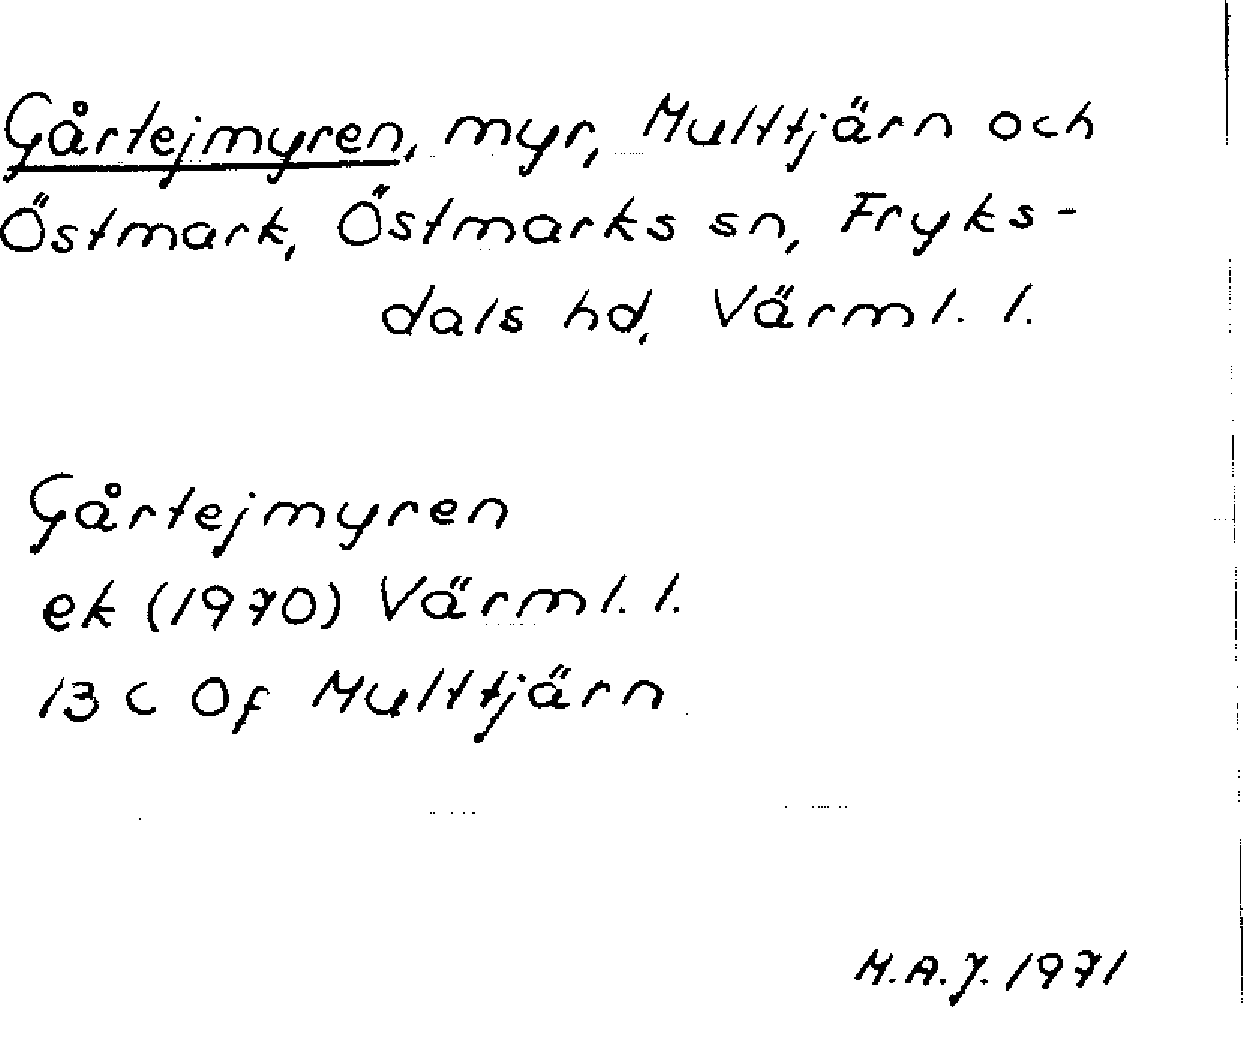 Gårtejmyren, myr, Multtjärn och
Östmark, Östmarks sn, Fryks-
dals hd, Värml. l.
Gårtejmyren
ek (1970) Värml. l.
13 C 0f Multtjärn
M.A.J. 1971